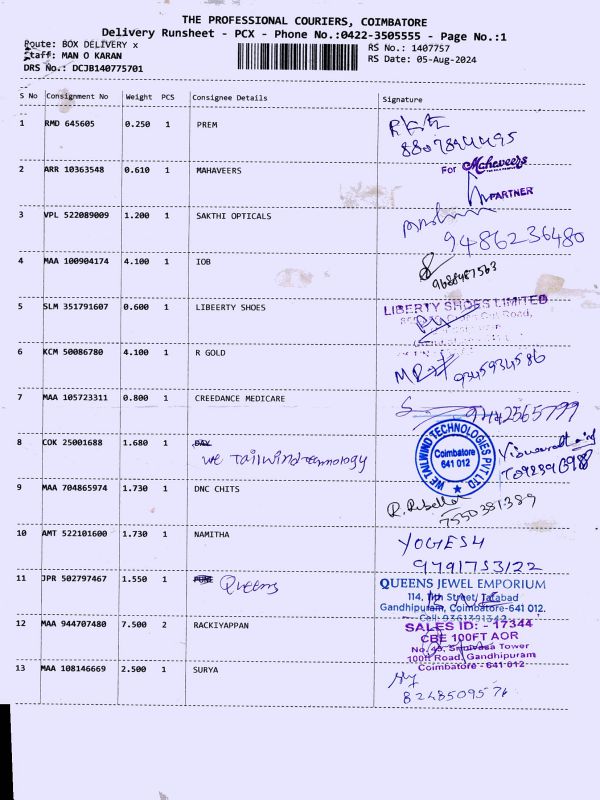 THE PROFESSIONAL COURIERS, COIMBATORE
Delivery Runsheet - PCX - Phone No.:0422-3505555 - Page No.:1
Route: BOX DELIVERY x
Staff: MAN O KARAN
DRS No.: DCJB140775701
RS No.: 1407757
RS Date: 05-Aug-2024
S No Consignment No Weight PCS Consignee Details Signature
1 RMD 645605 0.250 1 PREM
8807894495
2 ARR 10363548 0.610 1 MAHAVEERS
For Mahaveers
PARTNER
3 VPL 522089009 1.200 1 SAKTHI OPTICALS
9486236480
4 MAA 100904174 4.100 1 IOB
9688487563
5 SLM 351791607 0.600 1 LIBEERTY SHOES
LIBERTY SHOES LIMITED
Road,
6 KCM 50086780 4.100 1 R GOLD
9345934586
7 MAA 105723311 0.800 1 CREEDANCE MEDICARE
8 COK 25001688 1.680 1
We Tailwind technology
WE TAILWIND TECHNOLOGIES PVT LTD
Coimbatore
641 012
9 MAA 704865974 1.730 1 DNC CHITS
7550381389
10 AMT 522101600 1.730 1 NAMITHA
YOGESH
9791753122
11 JPR 502797467 1.550 1 Queens
QUEENS JEWEL EMPORIUM
114, 11th Street, Tatabad
Gandhipuram, Coimbatore-641 012.
Cell: 9361391342
12 MAA 944707480 7.500 2 RACKIYAPPAN
SALES ID: - 17344
CBE 100FT AOR
No. 49, Srinivasa Tower
100ft Road, Gandhipuram
Coimbatore - 641 012
13 MAA 108146669 2.500 1 SURYA
8248509576